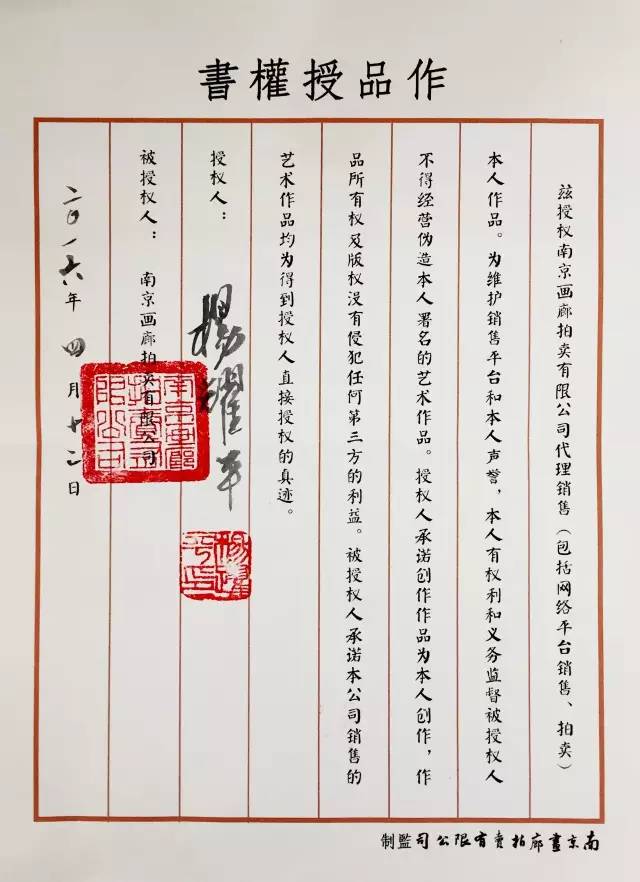 作品授權書
兹授权南京画廊拍卖有限公司代理销售（包括网络平台销售、拍卖）
本人作品。为维护销售平台和本人声誉，本人有权利和义务监督被授权人
不得经营伪造本人署名的艺术作品。授权人承诺创作作品为本人创作，作
品所有权及版权没有侵犯任何第三方的利益。被授权人承诺本公司销售的
艺术作品均为得到授权人直接授权的真迹。
授权人：楊耀平
被授权人：南京画廊拍卖有限公司
二〇一六年四月廿二日
南京畫廊拍賣有限公司監制